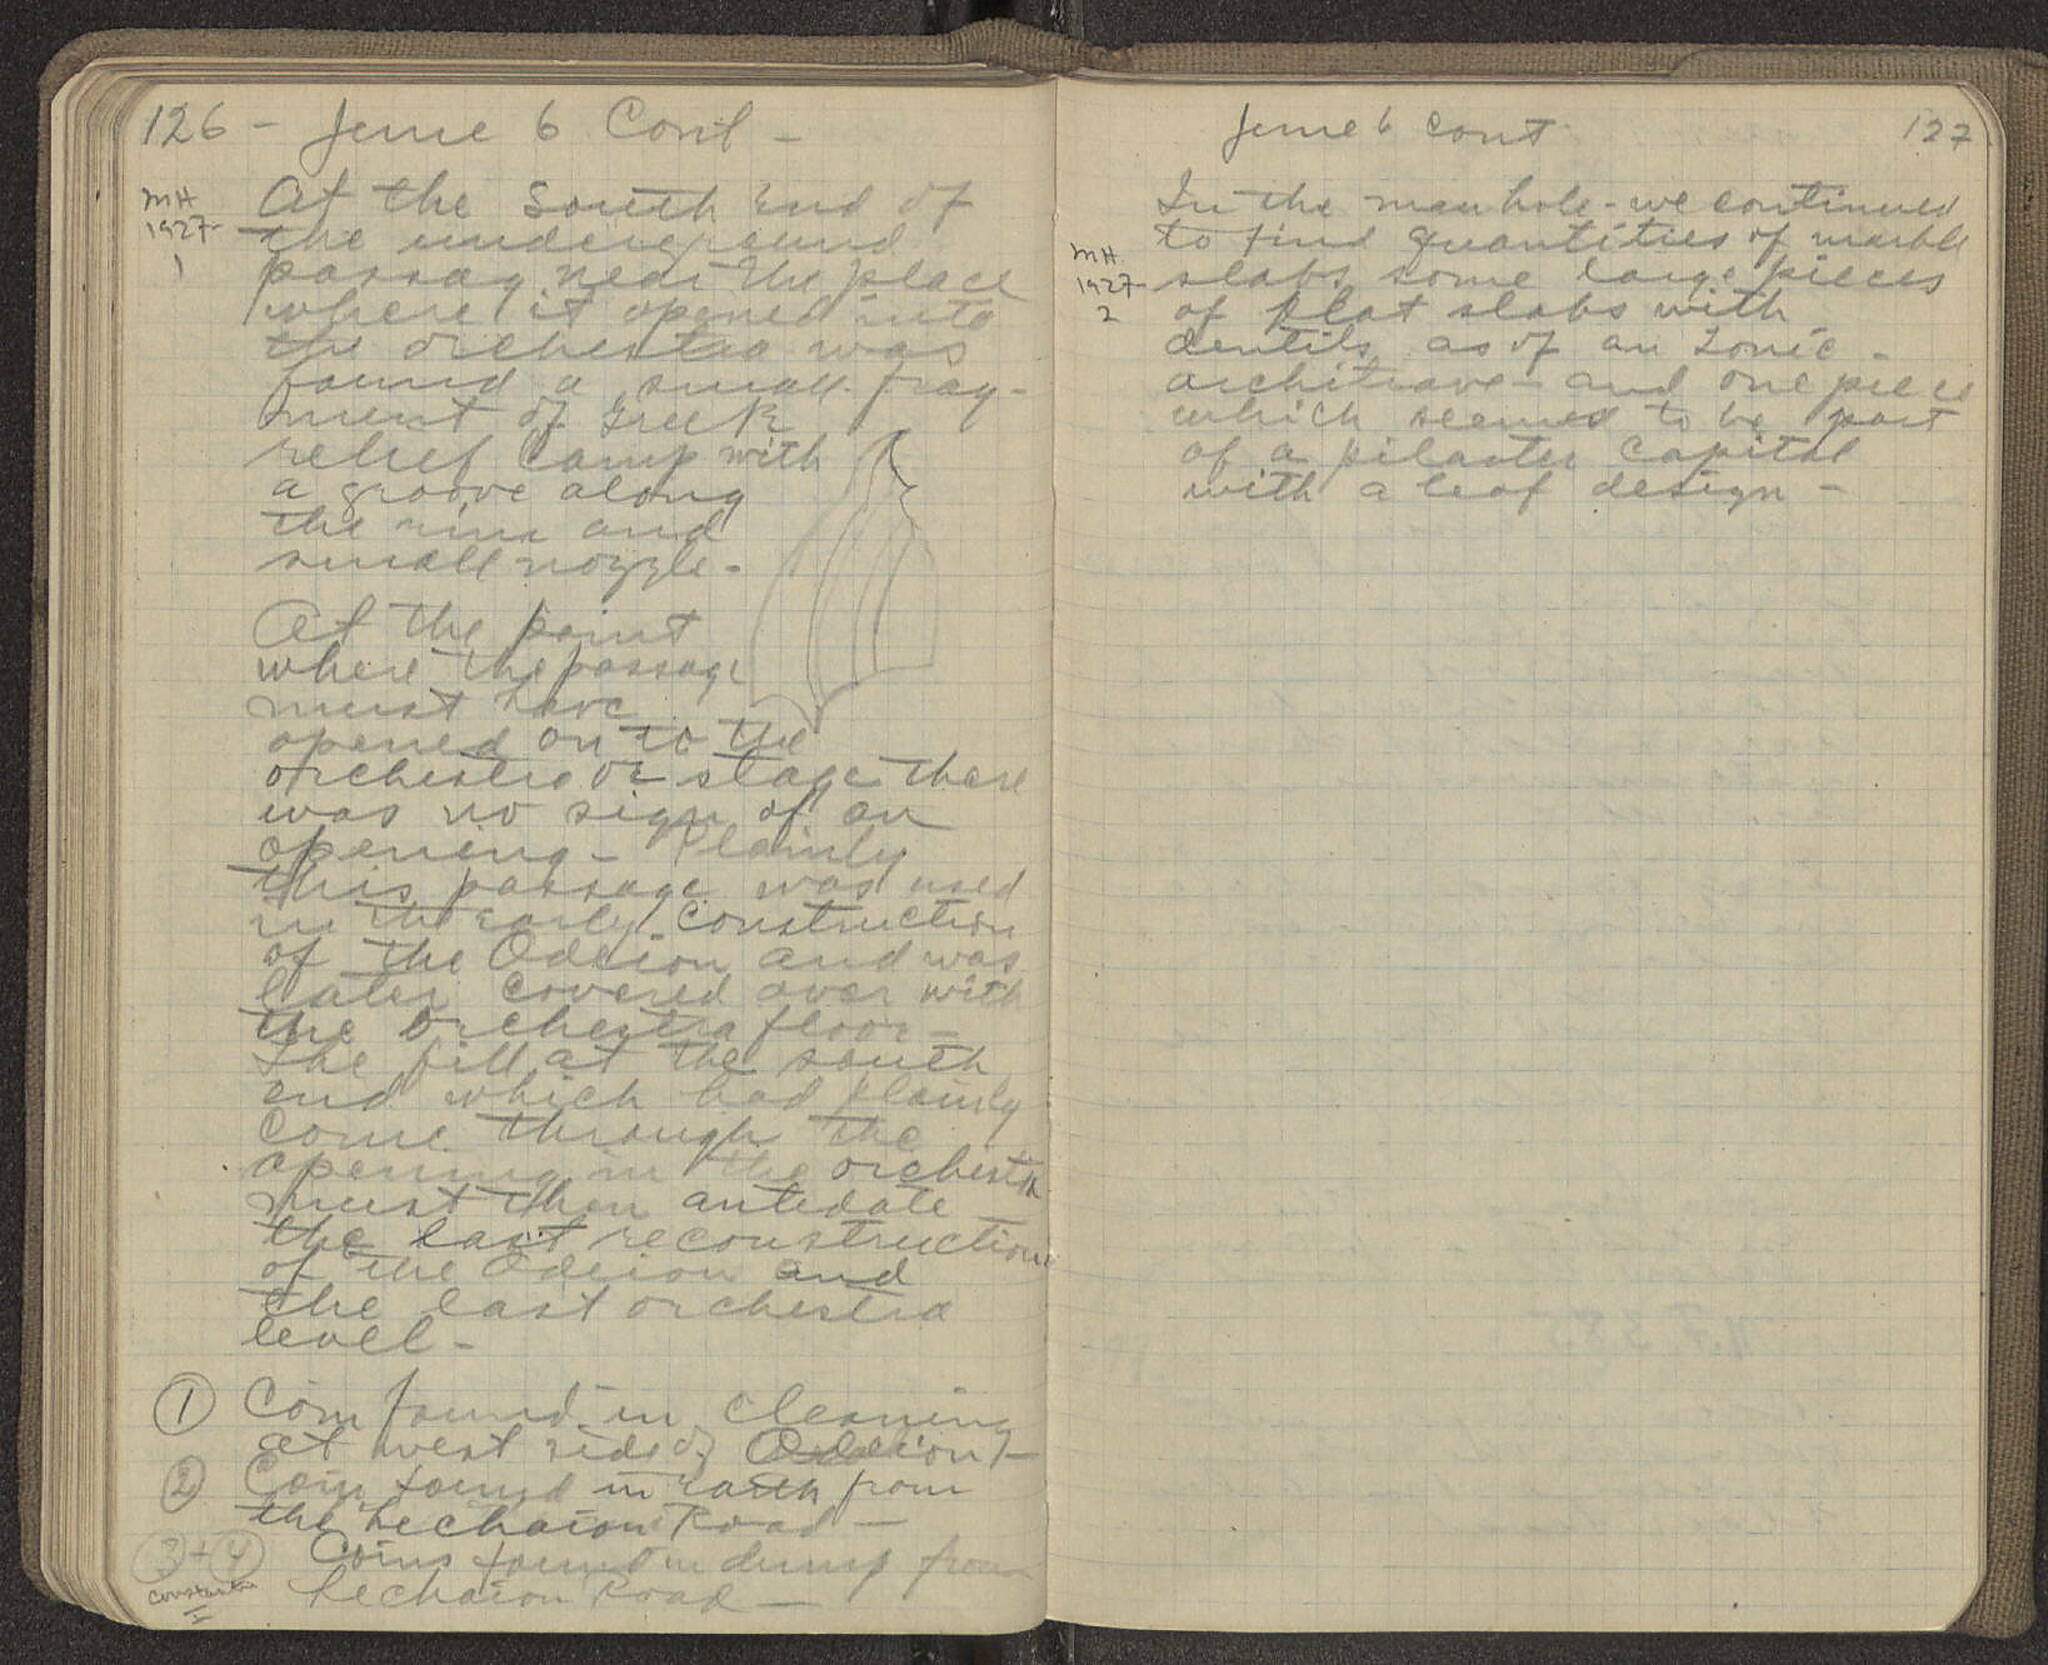 126 - June 6 Cont -
MH
1927-
1
At the South End of
the underground
passag near the place
where it opened into
the orchestra was
found a small frag-
ment of Greek
relief lamp with
a groove along
the rim and
small nozzle -
At the point
where the passage
must have
opened on to the
orchestra or stage there
was no sign of an
opening - Plainly
this passage was used
in the early construction
of the Odeion and was
later covered over with
the orchestra floor -
The fill at the south
end which had plainly
come through the
opening in the orchestra
must then antedate
the last reconstruction
of the Odeion and
the last orchestra
level -
1 Coin found in cleaning
at west side of Odeion -
2 Coin found in earth from
the Lechaion Road -
3 + 4 Coins found in dump from
Lechaion Road -
I
June 6 Cont
127
In the manhole - we continued
to find quantities of marble
MH
1927-
2
slabs some large pieces
of flat slabs with
dentils as of an Ionic -
architrave - and one piece
which seemed to be part
of a pilaster capital
with a leaf design -